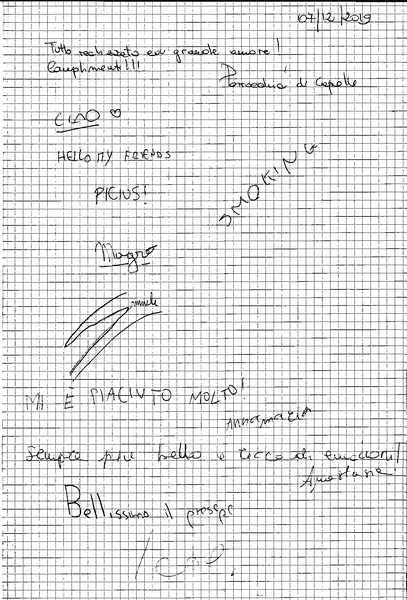 07/12/2019
Tutto realizzato con grande amore!
Complimenti!!!
Parrocchia di Capolle
CIAO ♡
HELLO MY FRIENDS
PICIUS!
SMOKING
Magro
MI È PIACIUTO MOLTO!
Annamaria
Sempre più bello e ricco di emozioni!
Anastasia
Bellissimo il presepe